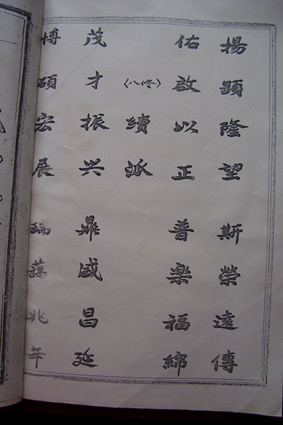 揚顕隆望 斯榮遠傳
佑啟以正 普樂福綿
〈八修〉續派
茂才振兴 鼎盛昌延
博碩宏展 瑞藹兆年